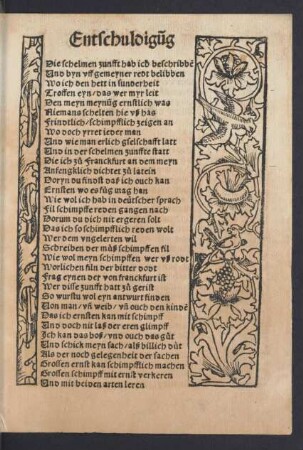 Entschuldigūg
Die schelmen zunfft hab ich beschribbē
Und byn vff gemeyner redt belibben
Wo ich den hett in sunderheit
Troffen eyn / das wer myr leit
Den meyn meynūg ernstlich was
Niemans schelten hie vß has
Frindtlich / schimpfflich zeigen an
Wo doch yrret ieder man
Und wie man erlich gselschafft latt
Und in der schelmen zunffte statt
Die ich zů Franckfurt an dem meyn
Anfengklich dichtet zů latein
Doryn du findst das ich ouch kan
Ernsten wo es fůg mag han
Wie wol ich hab in deütscher sprach
Fil schimpffe reden gangen nach
Dorum du dich nit ergeren solt
Das ich so schimpfflich reden wolt
Wer dem vngelerten wil
Schreiben der můß schimpffen fil
Wie wol meyn schimpffen wer vß rodt
Worlichen fůn der bitter dodt
Frag eynen der von franckfurt ist
Wer disse zunfft hatt zů gerist
So wurstu wol eyn antwurt finden
Von man / vñ weib / vñ ouch den kindē
Das ich ernsten kan mit schimpff
Und doch nit laß der eren glimpff
Ich kan das boß / vnd ouch das gůt
Und schick meyn sach / alß billich důt
Als der noch gelegenheit der sachen
Grossen ernst kan schimpfflich machen
Grossen schimpff mit ernst verkeren
Und mit beiden arten leren